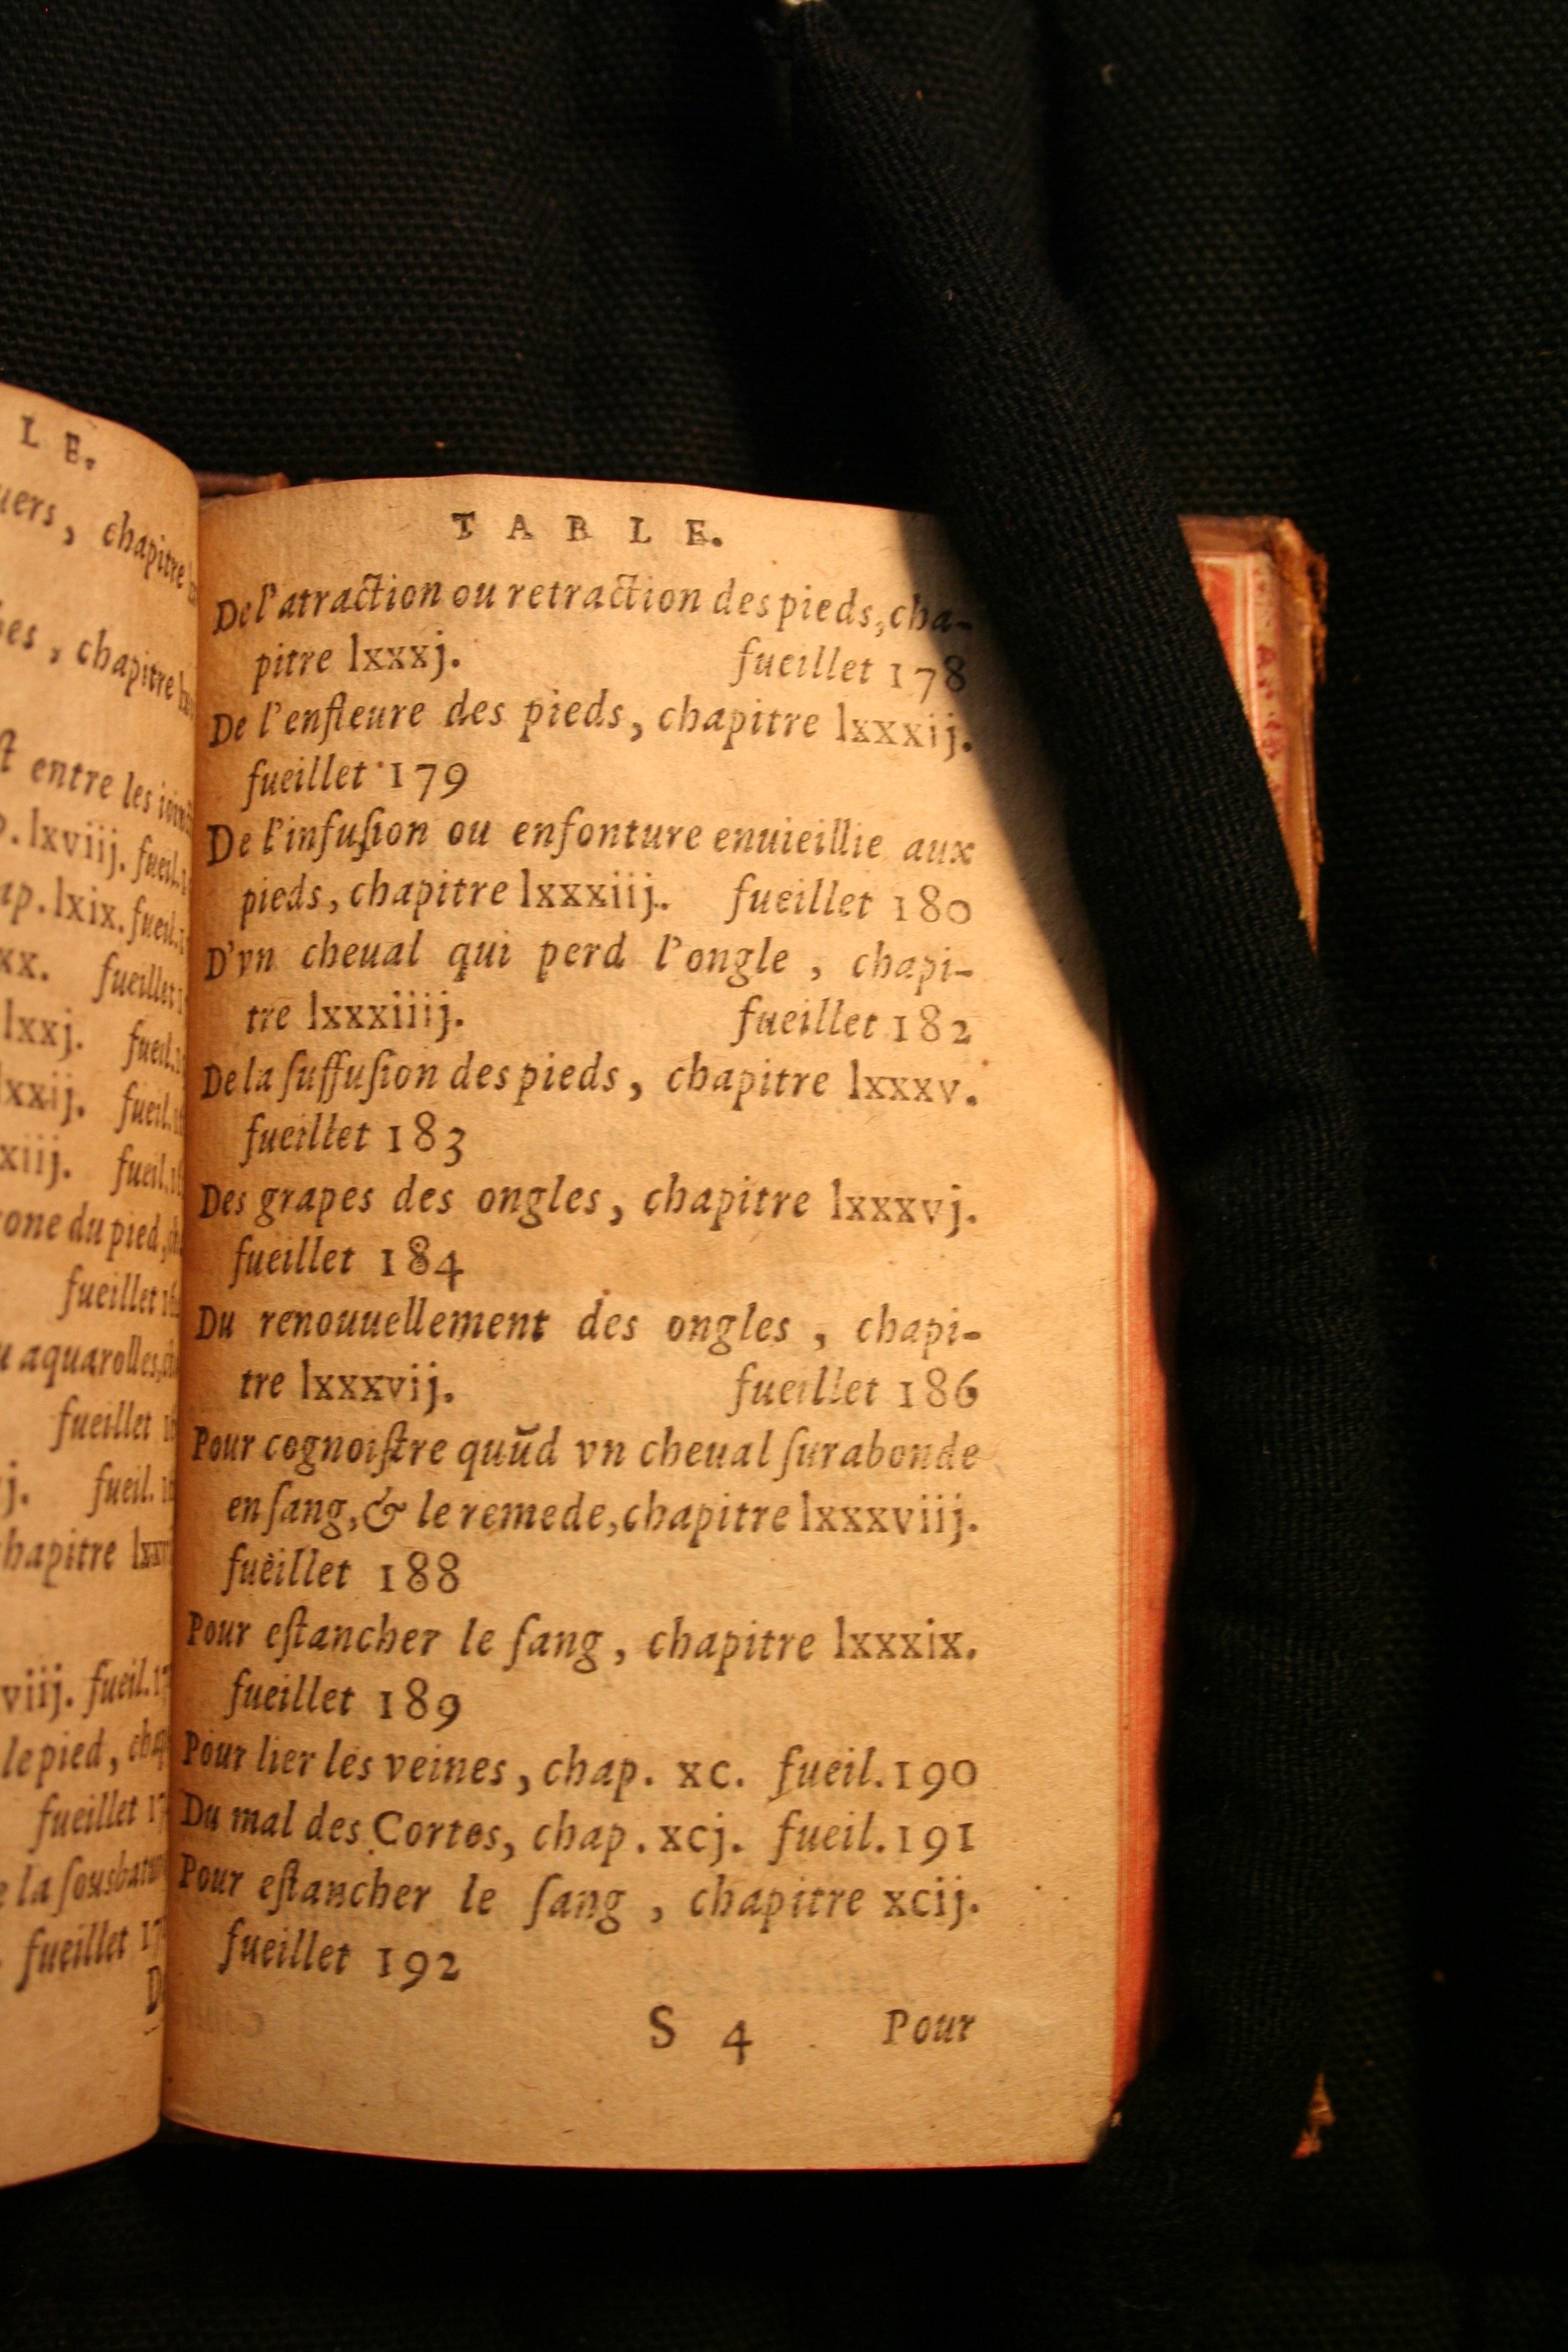 L E.
chapitre
, chapitre
entre les
lxviij. fueil.
lxix. fueil.
xx. fueillet
lxxj. fueil.
lxxij. fueil.
xiij. fueil.
du pied,
fueillet
aquarolles,
fueillet
j. fueil.
chapitre
viij. fueil.
le pied,
fueillet
la sousbatu
fueillet
T A B L E.
De l'atraction ou retraction des pieds, cha-
pitre lxxxj. fueillet 178
De l'enfleure des pieds, chapitre lxxxij.
fueillet 179
De l'infuſion ou enfonture enuieillie aux
pieds, chapitre lxxxiij. fueillet 180
D'vn cheual qui perd l'ongle, chapi-
tre lxxxiiij. fueillet 182
De la ſuffuſion des pieds, chapitre lxxxv.
fueillet 183
Des grapes des ongles, chapitre lxxxvj.
fueillet 184
Du renouuellement des ongles, chapi-
tre lxxxvij. fueillet 186
Pour cognoiſtre quũd vn cheual ſurabonde
en ſang, & le remede, chapitre lxxxviij.
fueillet 188
Pour eſtancher le ſang, chapitre lxxxix.
fueillet 189
Pour lier les veines, chap. xc. fueil. 190
Du mal des Cortes, chap. xcj. fueil. 191
Pour eſtancher le ſang, chapitre xcij.
fueillet 192
S 4 Pour